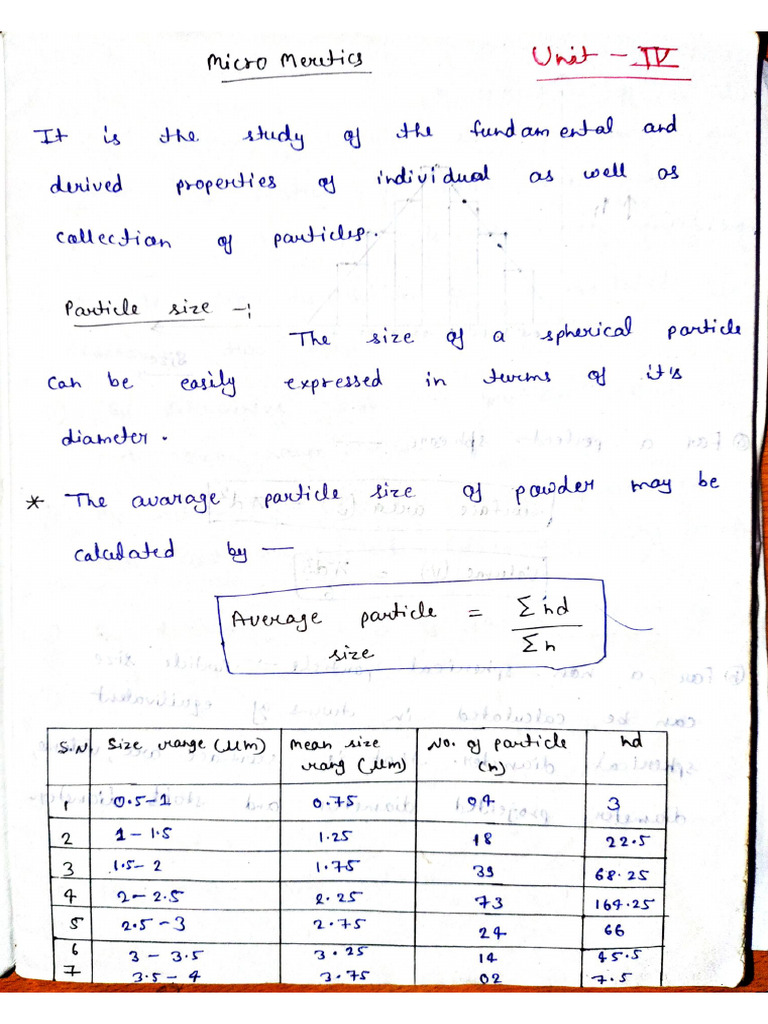 Micro Meretics Unit - IV
It is the study of the fundamental and
derived properties of individual as well as
collection of particles.
Particle size -:
The size of a spherical particle
can be easily expressed in terms of it's
diameter.
* The avarage particle size of powder may be
calculated by —
Average particle size = Σnd / Σn
S.N Size range (μm) Mean size rang (μm) No. of particle (n) nd
1 0.5-1 0.75 04 3
2 1-1.5 1.25 18 22.5
3 1.5-2 1.75 39 68.25
4 2-2.5 2.25 73 164.25
5 2.5-3 2.75 24 66
6 3-3.5 3.25 14 45.5
7 3.5-4 3.75 02 7.5